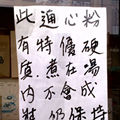 此通心粉
有特優硬
質.煮在湯
内不會成
粉仍保持